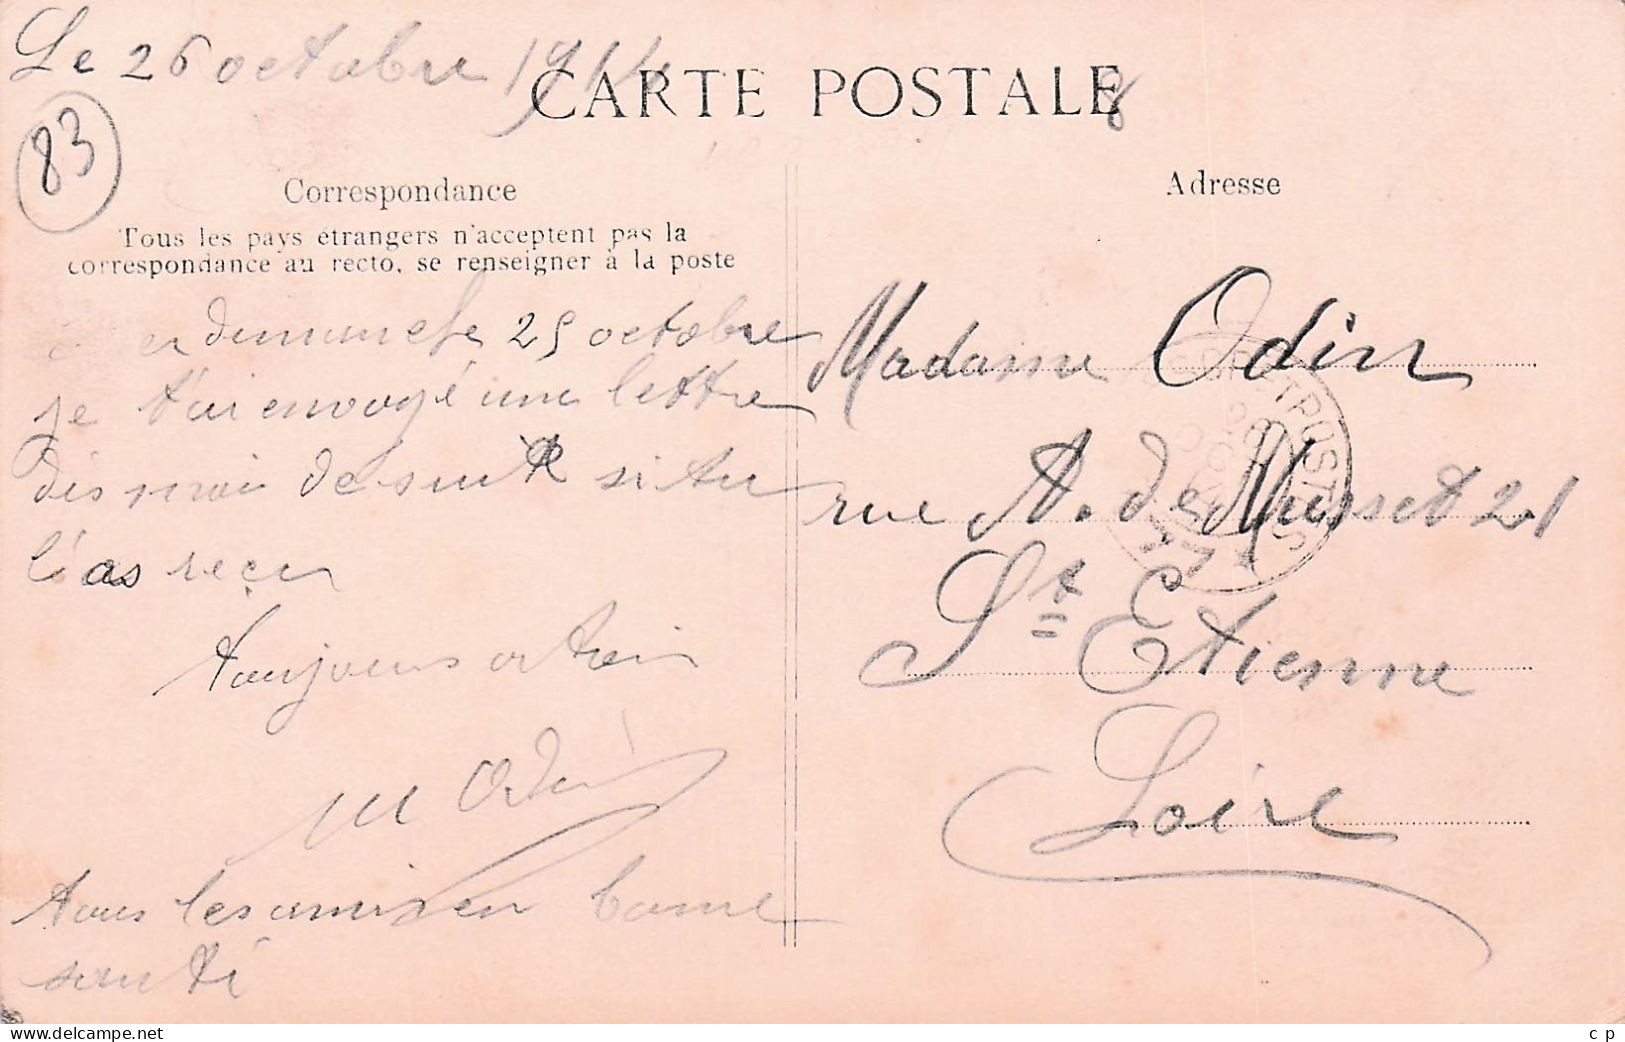 Le 26 octobre 1914
83
CARTE POSTALE
8
Correspondance
Tous les pays étrangers n'acceptent pas la
correspondance au recto, se renseigner à la poste
dimanche 25 octobre
je t'ai envoyé une lettre
dis moi de suite si tu
l'as reçu
toujours
M Odin
tous les amis en bonne
santé
Adresse
Madame Odin
rue A. de Musset 21
St Etienne
Loire
ET POSTES
delcampe.net
c p